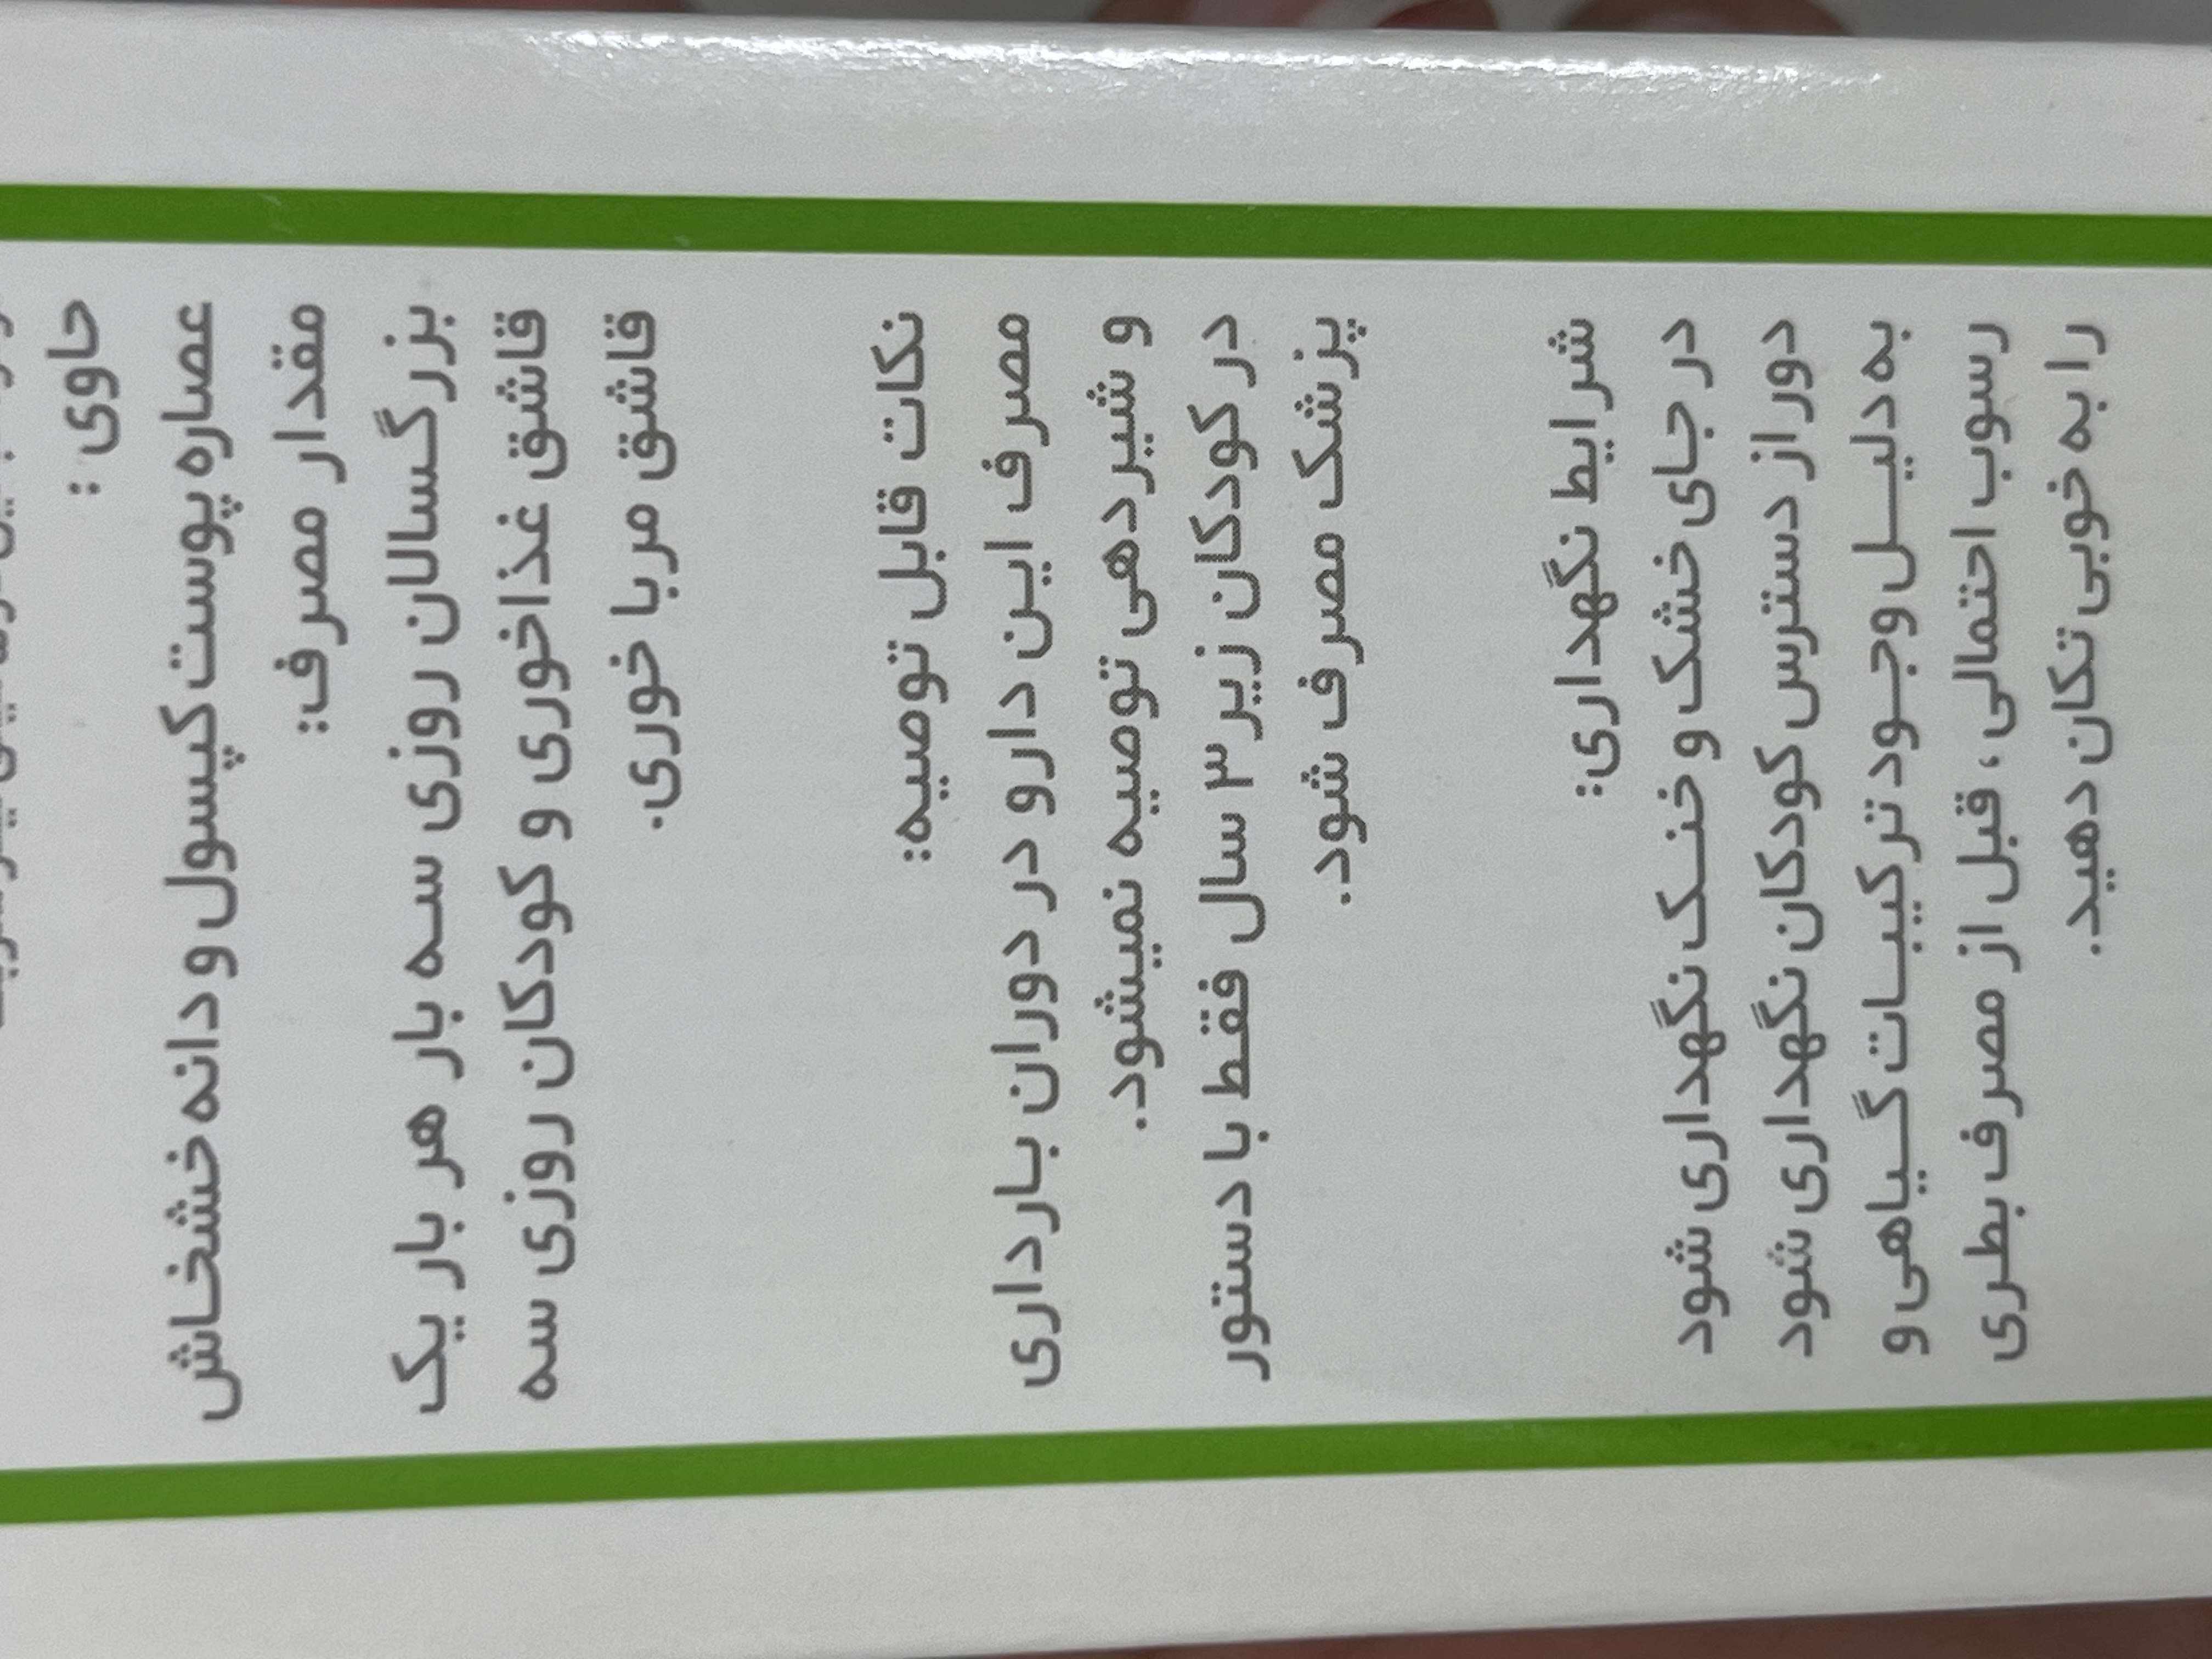 حاوی :
عصاره پوست کپسول و دانه خشخاش
مقدار مصرف:
بزرگسالان روزی سه بار هر بار یک
قاشق غذاخوری و کودکان روزی سه
قاشق مرباخوری.
نکات قابل توصیه:
مصرف این دارو در دوران بارداری
و شیردهی توصیه نمیشود.
در کودکان زیر ۳ سال فقط با دستور
پزشک مصرف شود.
شرایط نگهداری:
در جای خشک و خنک نگهداری شود
دور از دسترس کودکان نگهداری شود
به دلیل وجود ترکیبات گیاهی و
رسوب احتمالی، قبل از مصرف بطری
را به خوبی تکان دهید.